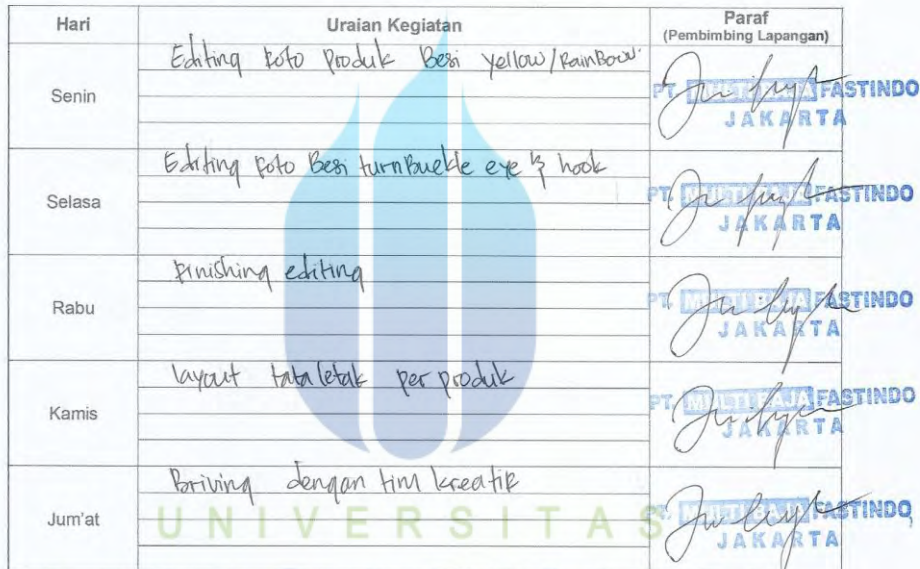 Hari Uraian Kegiatan Paraf
(Pembimbing Lapangan)
Senin Editing Foto Produk Besi yellow/RainBow
PT. MULTI BAJA FASTINDO
JAKARTA
Selasa Editing Foto Besi turnBuckle eye & hook
PT. MULTI BAJA FASTINDO
JAKARTA
Rabu Finishing editing
PT. MULTI BAJA FASTINDO
JAKARTA
Kamis layout tata letak per produk
PT. MULTI BAJA FASTINDO
JAKARTA
Jum'at Briving dengan tim kreatif
PT. MULTI BAJA FASTINDO
JAKARTA
UNIVERSITAS